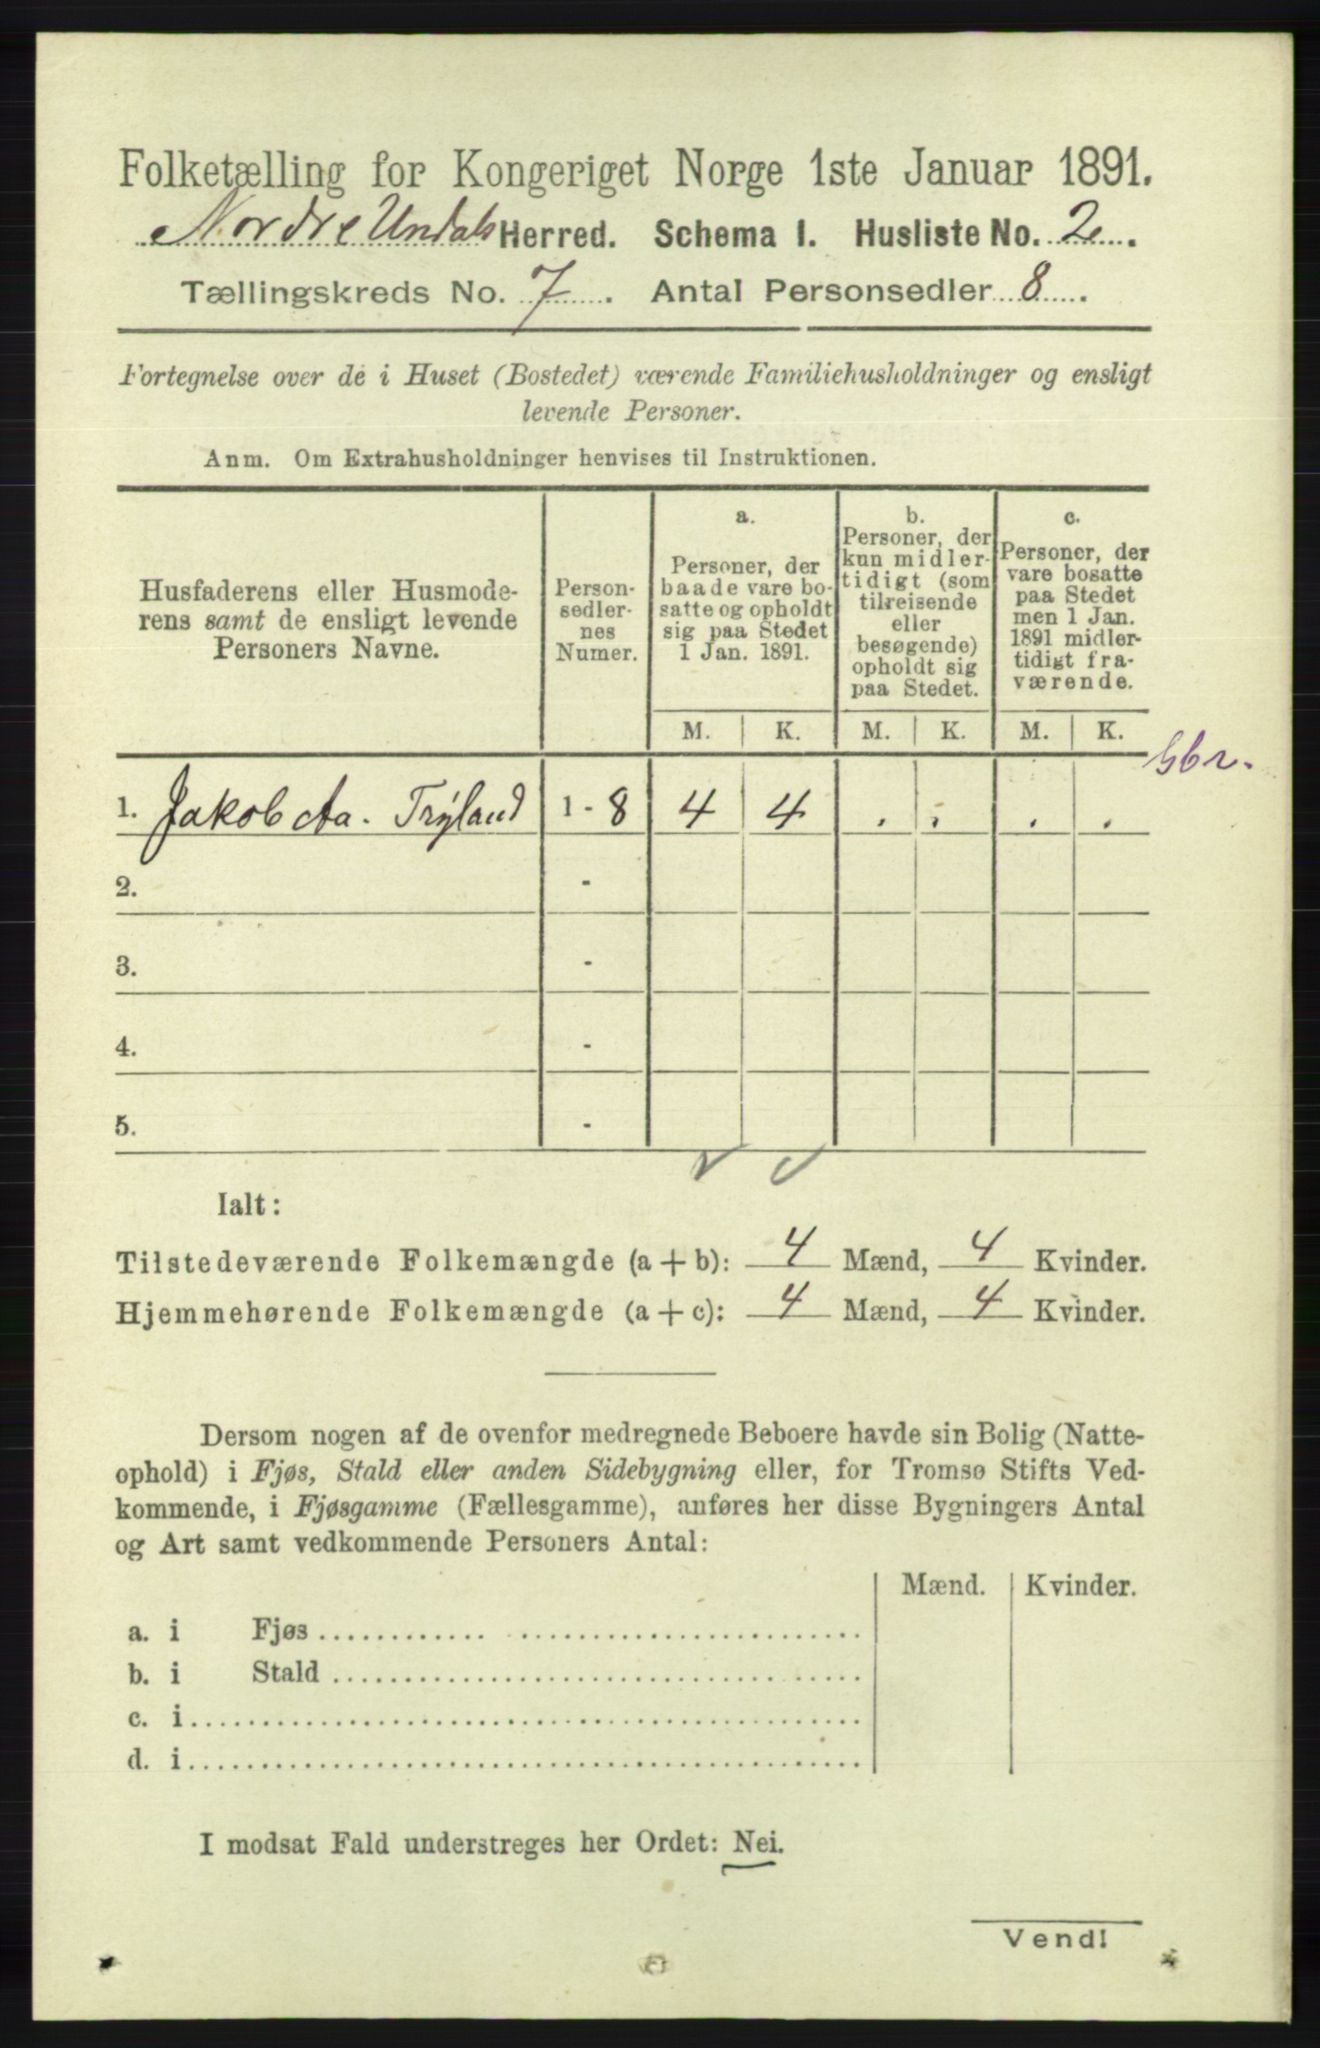 Folketælling for Kongeriget Norge 1ste Januar 1891.
Nordre Undals Herred. Schema I. Husliste No. 2.
Tællingskreds No. 7. Antal Personsedler 8.
Fortegnelse over de i Huset (Bostedet) værende Familiehusholdninger og ensligt
levende Personer.
Anm. Om Extrahusholdninger henvises til Instruktionen.
Husfaderens eller Husmode-
rens samt de ensligt levende
Personers Navne.
Person-
sedler-
nes
Numer.
a.
Personer, der
baade vare bo-
satte og opholdt
sig paa Stedet
1 Jan. 1891.
b.
Personer, der
kun midler-
tidigt (som
tilreisende
eller
besøgende)
opholdt sig
paa Stedet.
c.
Personer, der
vare bosatte
paa Stedet
men 1 Jan.
1891 midler-
tidigt fra-
værende.
M. K. M. K. M. K.
Gbr.
1. Jakob Aa. Trýland 1 - 8 4 4 . . . .
2. -
3. -
4. -
5. -
Ialt:
Tilstedeværende Folkemængde (a + b): 4 Mænd, 4 Kvinder.
Hjemmehørende Folkemængde (a + c): 4 Mænd, 4 Kvinder.
Dersom nogen af de ovenfor medregnede Beboere havde sin Bolig (Natte-
ophold) i Fjøs, Stald eller anden Sidebygning eller, for Tromsø Stifts Ved-
kommende, i Fjøsgamme (Fællesgamme), anføres her disse Bygningers Antal
og Art samt vedkommende Personers Antal:
Mænd. Kvinder.
a. i Fjøs
b. i Stald
c. i
d. i
I modsat Fald understreges her Ordet: Nei.
Vend!